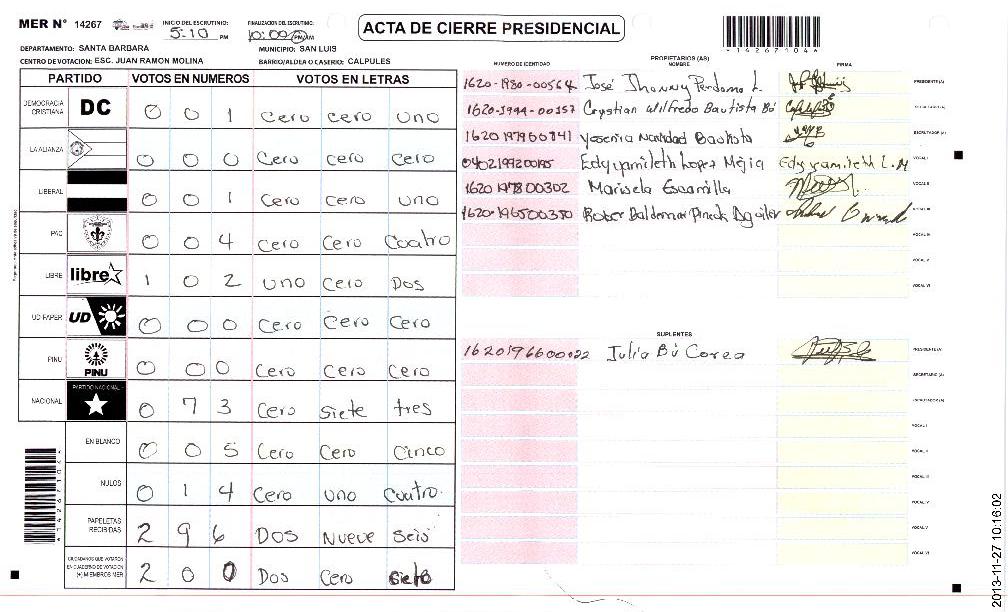 MER N° 14267
INICIO DEL ESCRUTINIO: 5:10 PM
FINALIZACIÓN DEL ESCRUTINIO: 10:09 PM/AM
ACTA DE CIERRE PRESIDENCIAL
14267104
DEPARTAMENTO: SANTA BARBARA
MUNICIPIO: SAN LUIS
CENTRO DE VOTACION: ESC. JUAN RAMON MOLINA
BARRIO/ALDEA O CASERIO: CALPULES
PARTIDO VOTOS EN NUMEROS VOTOS EN LETRAS
DEMOCRACIA CRISTIANA DC 0 0 1 cero cero uno
LA ALIANZA 0 0 0 Cero cero cero
LIBERAL 0 0 1 cero cero uno
PAC 0 0 4 cero Cero Cuatro
LIBRE libre 1 0 2 uno Cero Dos
UD FAPER UD 0 0 0 Cero Cero Cero
PINU PINU 0 0 0 Cero Cero Cero
NACIONAL PARTIDO NACIONAL 0 7 3 Cero Siete tres
EN BLANCO 0 0 5 Cero Cero Cinco
NULOS 0 1 4 Cero uno Cuatro
PAPELETAS RECIBIDAS 2 9 6 Dos Nueve Seis
CIUDADANOS QUE VOTARON EN CUADERNO DE VOTACION (+) MIEMBROS MER 2 0 0 Dos Cero siete
PROPIETARIOS (AS)
NUMERO DE IDENTIDAD NOMBRE FIRMA
1620-1980-00564 José Jhonny Perdomo L. PRESIDENTE(A)
1620-1944-00357 Crystian Wilfredo Bautista Bú SECRETARIO (A)
1620197960841 Yosenia Natividad Bautista ESCRUTADOR (A)
0402199200195 Edy yamileth Lopez Mejia Edy yamileth L.M VOCAL I
1620197800302 Marisela Escamilla VOCAL II
1620-196500350 Rober Baldemar Pineda Aguilar VOCAL III
VOCAL IV
VOCAL V
VOCAL VI
SUPLENTES
1620196600022 Julia Bú Corea PRESIDENTE (A)
SECRETARIO (A)
ESCRUTADOR (A)
VOCAL I
VOCAL II
VOCAL III
VOCAL IV
VOCAL V
VOCAL VI
2013-11-27 10:16:02